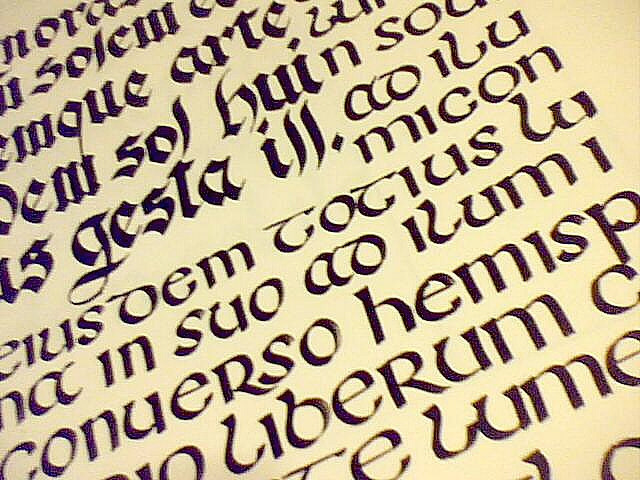 solem
emque arte.
dem sol huin sou
as gesta ill. ad ilu
micon
eiusdem totius lu
na in suo ad ilum i
conuerso hemisp
io liberum c
te lume